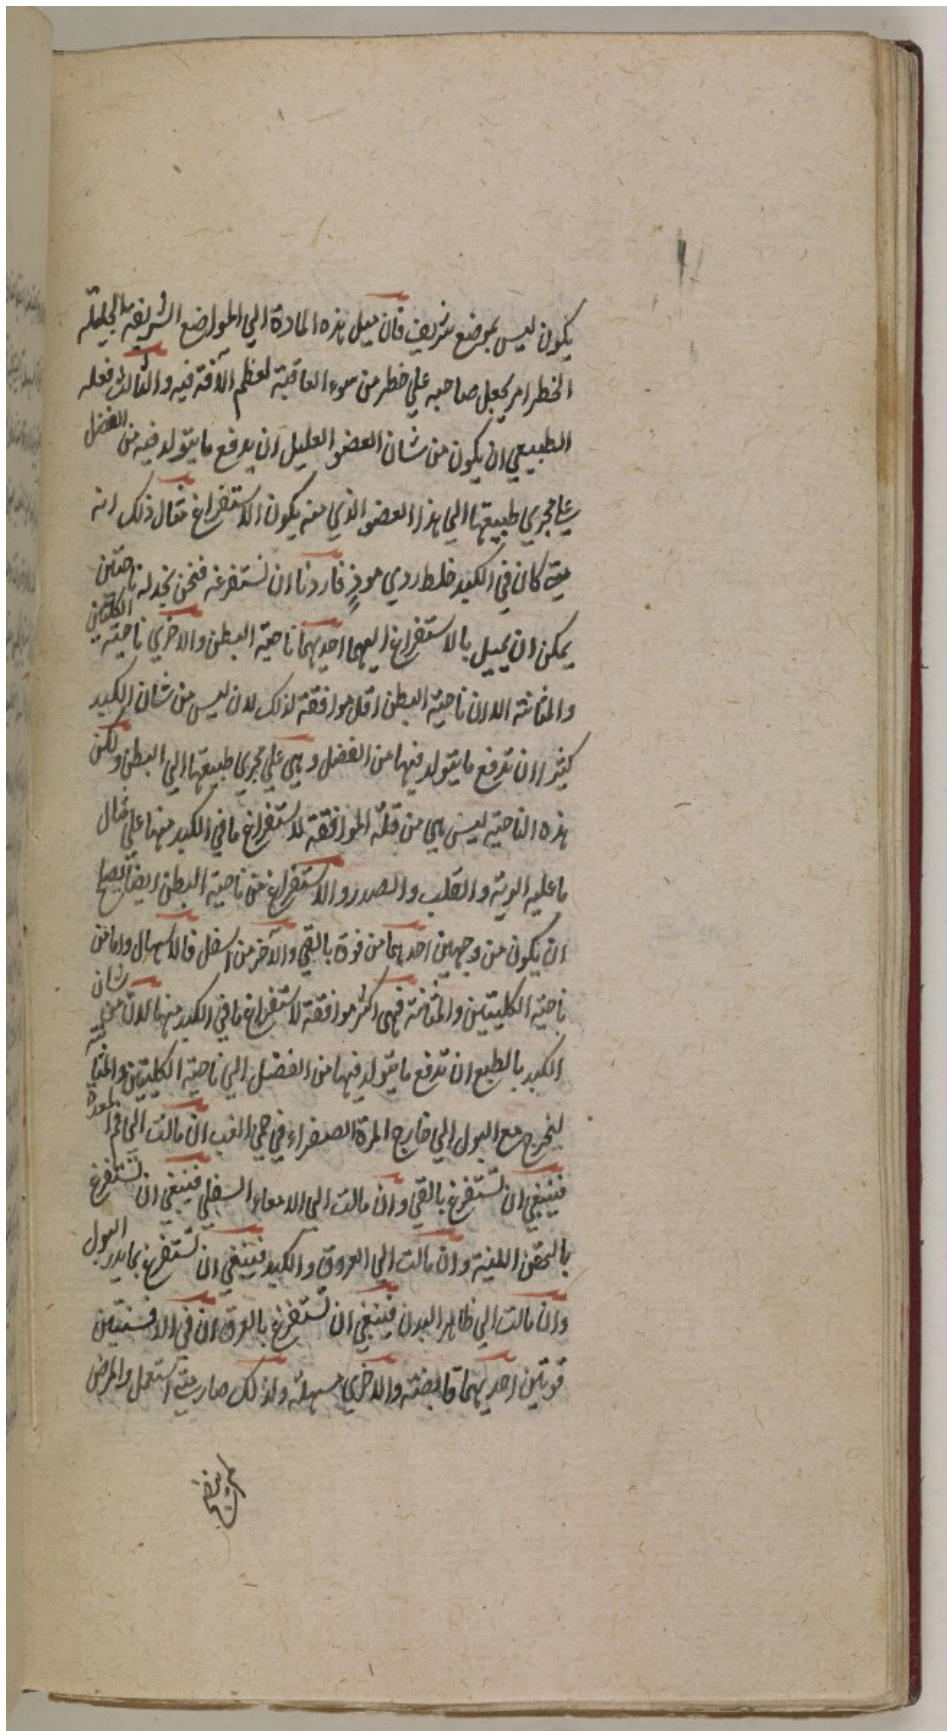 يكون ليس بموضع شريف فان ميل هذه المادة الي المواضع الشريفة الجليلة
الخطر امر يجعل صاحبه علي خطر من سوء العاقبة لعظم الآفة فيه والثالث فعله
الطبيعي ان يكون من شان العضو العليل ان يدفع ما يتولد فيه من الفضل
علي مجري طبيعتها الي هذا العضو الذي منه يكون الاستفراغ مثال ذلك انه
متي كان في الكبد خلط ردي موذٍ فاردنا ان نستفرغه فنحن نجد له ناحيتين
يمكن ان يميل بالاستفراغ اليهما احديهما ناحية البطن والاخري ناحية الكليتين
والمثانة الا ان ناحية البطن اقل موافقة لذلك لان ليس من شان الكبد
كثيرا ان تدفع ما يتولد فيها من الفضل وهي علي مجري طبيعتها الي البطن ولكن
هذه الناحية ليس هي من قلة الموافقة لاستفراغ ما في الكبد منها علي مثال
ما عليه الرية والقلب والصدر والاستفراغ من ناحية البطن ايضا يصلح
ان يكون من وجهين احدهما من فوق بالقي والآخر من اسفل فالاسهال واما من
ناحية الكليتين والمثانة فهي اكثر موافقة لاستفراغ ما في الكبد منها لان من شان
الكبد بالطبع ان تدفع ما يتولد فيها من الفضل الي ناحية الكليتين والمثانة
ليخرج مع البول الي خارج المرة الصفراء في حمي الغب ان مالت الي فم المعدة
فينبغي ان تستفرغ بالقي وان مالت الي الامعاء السفلي فينبغي ان تستفرغ
بالحقن اللينة وان مالت الي العروق والكبد فينبغي ان تستفرغ بما يدر البول
وان مالت الي ظاهر البدن فينبغي ان تستفرغ بالعرق ان في الافسنتين
قوتين احديهما قابضة والاخري مسهلة ولذلك صار متي استعمل والمرض